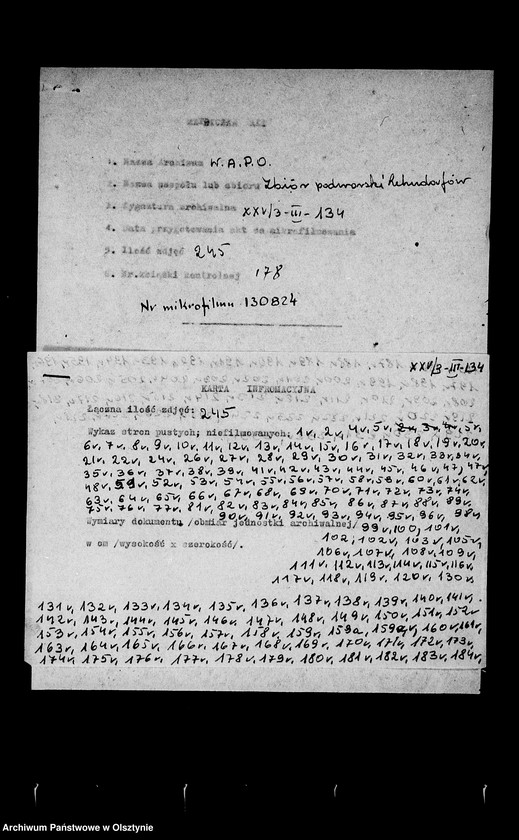 1. Nazwa Archiwum W.A.P.O.
2. Nazwa zespołu lub zbioru Zbiór podworski
3. Sygnatura archiwalna XXV/3-III-134
4. Data przygotowania akt do mikrofilmowania
5. Ilość zdjęć 245
6. Nr.książki kontrolnej 178
Nr mikrofilmu 130824
XXV/3-III-134
KARTA INFROMACYJNA
Łączna ilość zdjęć: 245
Wykaz stron pustych; niefilmowanych: 1v, 2v, 4v, 5v,
6v, 7v, 8v, 9v, 10v, 11v, 12v, 13v, 14v, 15v, 16v, 17v, 18v, 19v, 20v,
21v, 22v, 24v, 26v, 27v, 28v, 29v, 30v, 31v, 32v, 33v, 34v,
35v, 36v, 37v, 38v, 39v, 41v, 42v, 43v, 44v, 45v, 46v, 47v,
48v, 52v, 53v, 54v, 55v, 56v, 57v, 58v, 59v, 60v, 61v, 62v,
63v, 64v, 65v, 66v, 67v, 68v, 69v, 70v, 71v, 72v, 73v, 74v,
75v, 76v, 77v, 81v, 82v, 83v, 84v, 85v, 86v, 87v, 88v, 89v,
90v, 91v, 92v, 93v, 94v, 95v, 96v, 98v
Wymiary dokumentu /obmiar jednostki archiwalnej/ 99v, 100v, 101v,
102v, 103v, 105v,
w cm /wysokość x szerokość/.
106v, 107v, 108v, 109v,
111v, 112v, 113v, 114v, 115v, 116v,
117v, 118v, 119v, 120v, 130v
131v, 132v, 133v, 134v, 135v, 136v, 137v, 138v, 139v, 140v, 141v,
142v, 143v, 144v, 145v, 146v, 147v, 148v, 149v, 150v, 151v, 152v
153v, 154v, 155v, 156v, 157v, 158v, 159v, 159a, 160v, 161v,
163v, 164v, 165v, 166v, 167v, 168v, 169v, 170v, 171v, 172v, 173v,
174v, 175v, 176v, 177v, 178v, 179v, 180v, 181v, 182v, 183v, 184v,
Archiwum Państwowe w Olsztynie